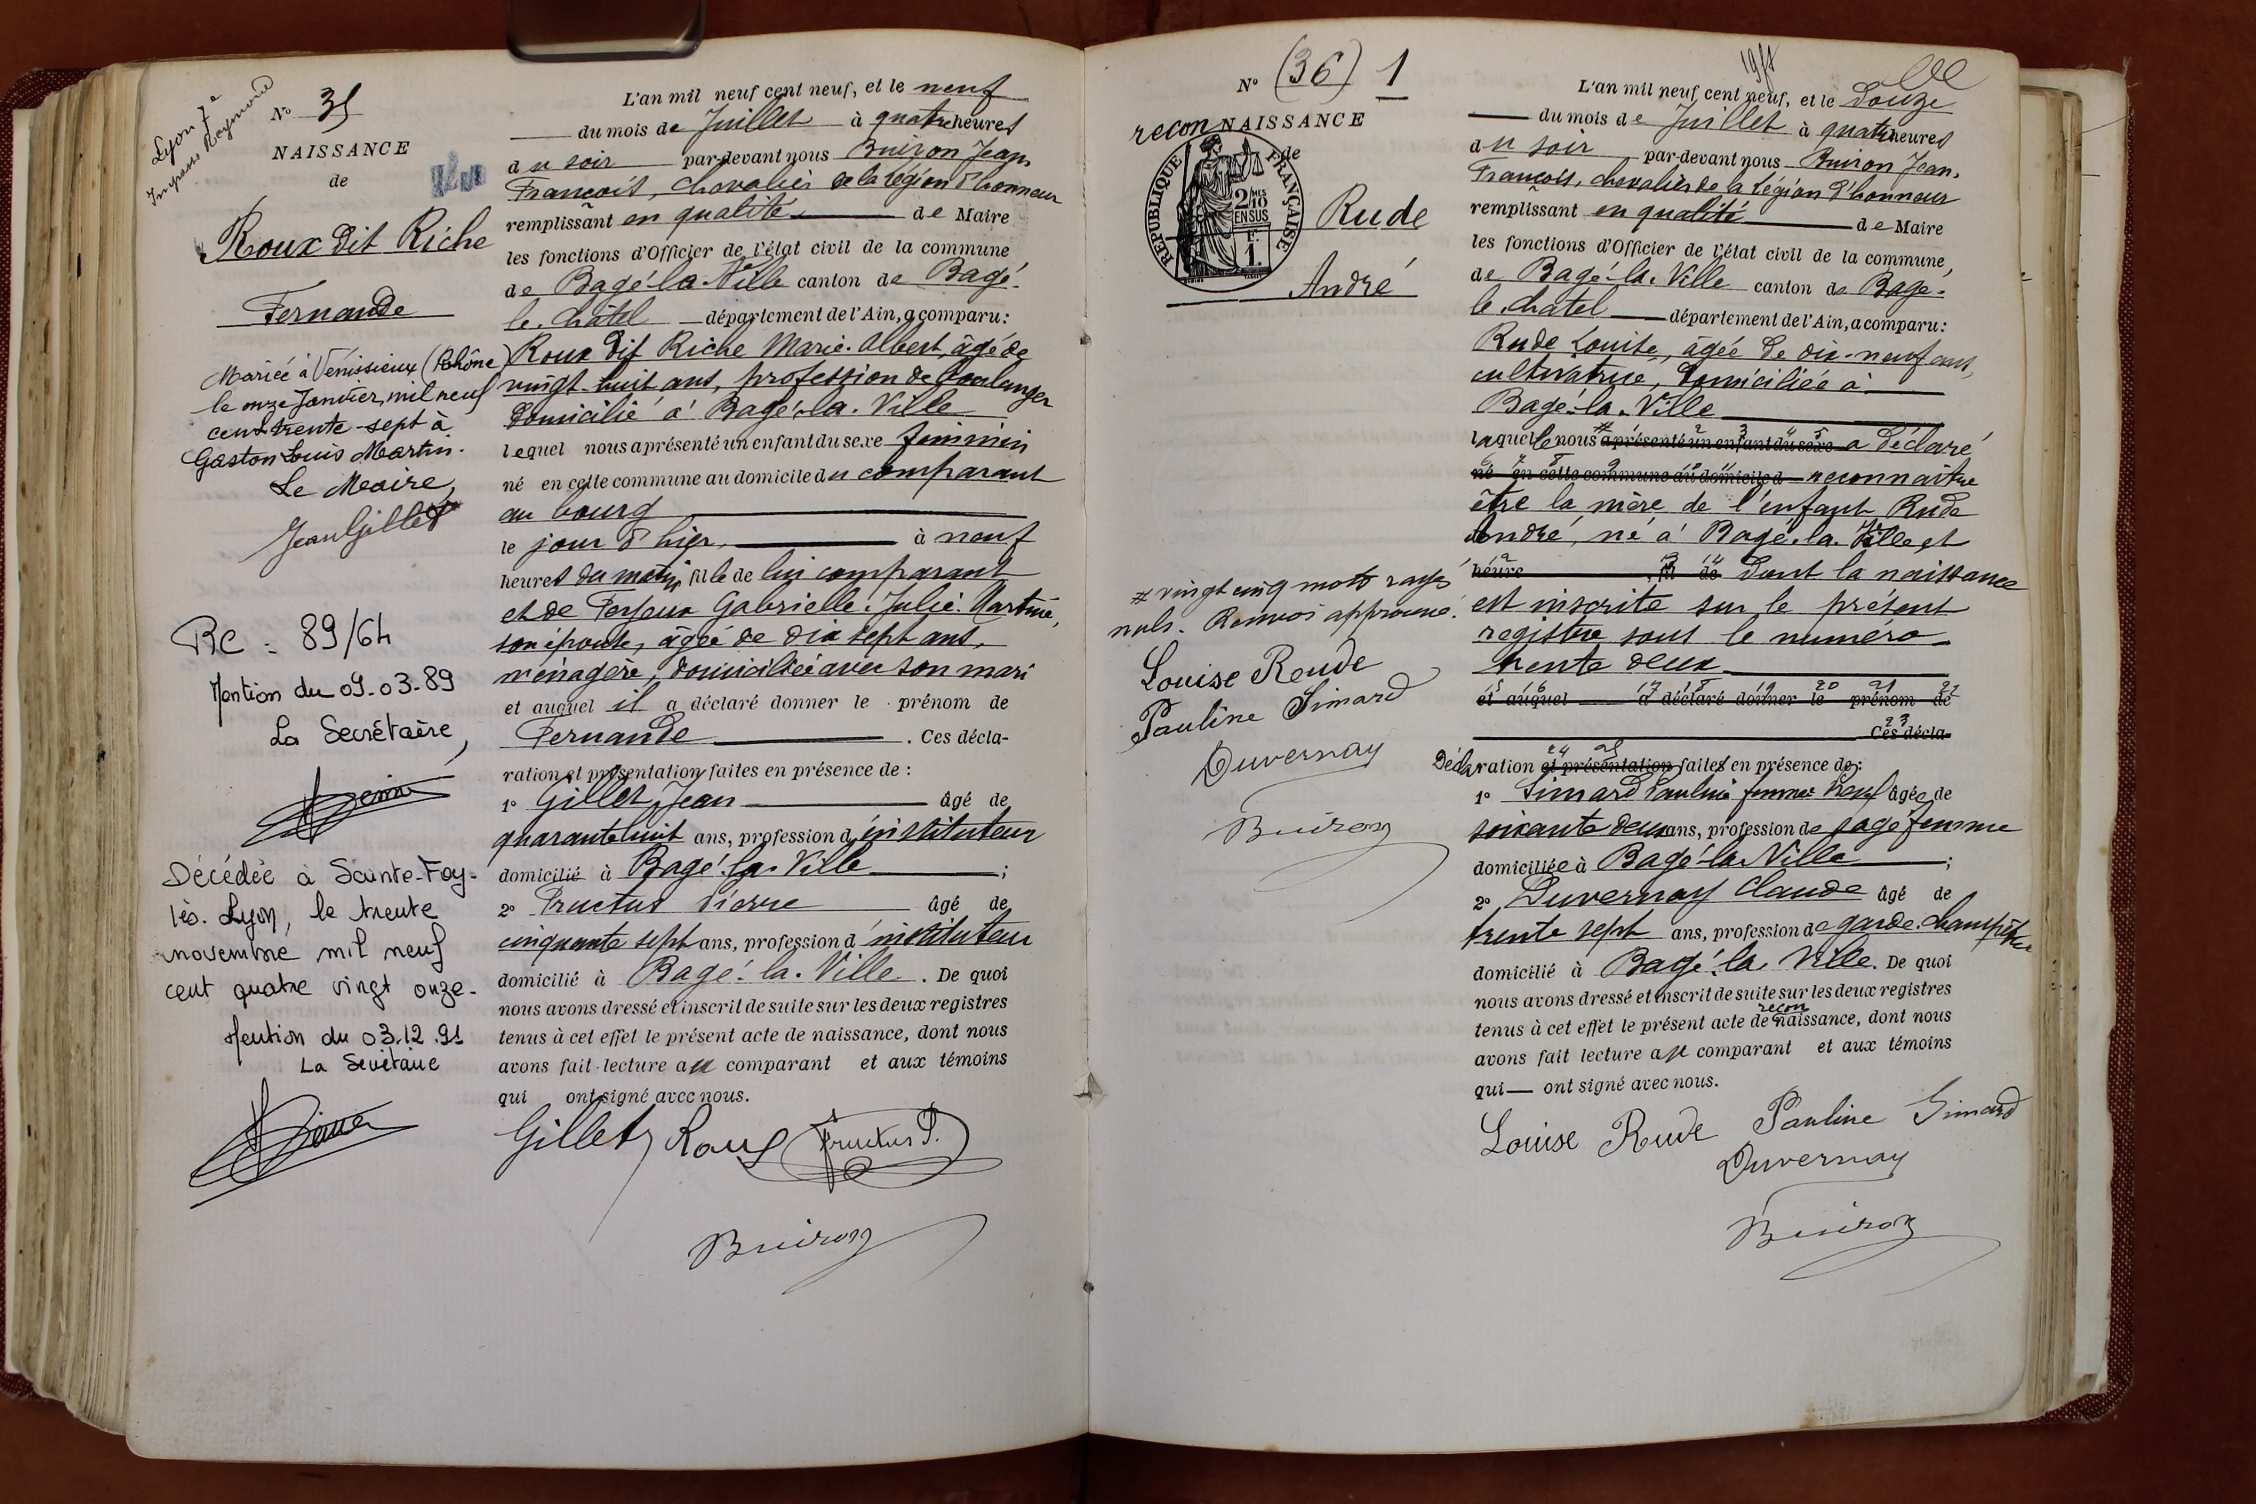 Lyon 7e
Impasse Reynard
No 35
NAISSANCE
de
Roux dit Riche
Fernande
Mariée à Vénissieux (Rhône)
le onze Janvier mil neuf
cent trente-sept à
Gaston Louis Martin.
Le Maire,
Jean Gillet
RC = 89/64
Mention du 09-03-89
La Secrétaire,
Décédée à Sainte-Foy-
lès-Lyon, le trente
novembre mil neuf
cent quatre vingt onze.
Mention du 03.12.91
La Secrétaire
L'an mil neuf cent neuf, et le neuf
du mois de Juillet à quatre heures
du soir par-devant nous Buiron Jean
François, chevalier de la légion d'honneur
remplissant en qualité de Maire
les fonctions d'Officier de l'état civil de la commune
de Bagé-la-Ville canton de Bagé-
le-Châtel département de l'Ain, a comparu:
Roux dit Riche Marie-Albert, âgé de
vingt-huit ans, profession de boulanger
domicilié à Bagé-la-Ville
lequel nous a présenté un enfant du sexe féminin
né en cette commune au domicile du comparant
au bourg
le jour d'hier, à neuf
heures du matin fille de lui comparant
et de Gabrielle-Julie-
son épouse, âgée de dix sept ans,
ménagère, domiciliée avec son mari
et auquel il a déclaré donner le prénom de
Fernande. Ces décla-
ration et présentation faites en présence de :
1o Gillet Jean âgé de
quarante huit ans, profession d'instituteur
domicilié à Bagé-la-Ville ;
2o Fructus Pierre âgé de
cinquante sept ans, profession d'instituteur
domicilié à Bagé-la-Ville. De quoi
nous avons dressé et inscrit de suite sur les deux registres
tenus à cet effet le présent acte de naissance, dont nous
avons fait lecture au comparant et aux témoins
qui ont signé avec nous.
Gillet Roux Fructus P.
Buiron
No (36) 1
recon NAISSANCE
de
REPUBLIQUE FRANÇAISE
2/10 MES
EN SUS
F.
1.
Rude
André
# vingt cinq mots rayés
nuls. Renvoi approuvé.
Louise Rude
Pauline Simard
Duvernay
Buiron
L'an mil neuf cent neuf, et le Douze
du mois de Juillet à quatre heures
du soir par-devant nous Buiron Jean-
François, chevalier de la légion d'honneur
remplissant en qualité de Maire
les fonctions d'Officier de l'état civil de la commune,
de Bagé-la-Ville canton de Bagé-
le-Chatel département de l'Ain, a comparu:
Rude Louise, âgée de dix-neuf ans,
cultivatrice, domiciliée à
Bagé-la-Ville
laquelle nous # a présenté un enfant du sexe a déclaré
né en cette commune au domicile d reconnaître
être la mère de l'enfant Rude
André, né à Bagé-la-Ville et
heure fil de dont la naissance
est inscrite sur le présent
registre sous le numéro
trente deux
et auquel a déclaré donner le prénom de
Ces décla-
Déclaration et présentation faites en présence de:
1o Simard Pauline femme âgée de
soixante deux ans, profession de sage femme
domiciliée à Bagé-la-Ville ;
2o Duvernay Claude âgé de
trente sept ans, profession de garde-champêtre
domicilié à Bagé-la-Ville. De quoi
nous avons dressé et inscrit de suite sur les deux registres
tenus à cet effet le présent acte de recon naissance, dont nous
avons fait lecture au comparant et aux témoins
qui ont signé avec nous.
Louise Rude Pauline Simard
Duvernay
Buiron